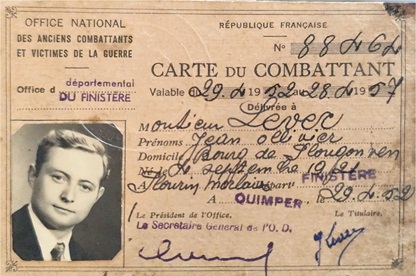 OFFICE NATIONAL
DES ANCIENS COMBATTANTS
ET VICTIMES DE LA GUERRE
Office d départemental
DU FINISTÈRE
RÉPUBLIQUE FRANÇAISE
N° 88464
CARTE DU COMBATTANT
Valable du 29.4 1952 au 28.4 1957
Délivrée à
Monsieur Lever
Prénoms Jean ollivier
Domicile Bourg de Plougonven
Né le 4 septembre
Plourin morlaix Départ FINISTÈRE
A QUIMPER 29.4.52
Le Président de l'Office. Le Titulaire.
Le Secrétaire Général de l'O.D.